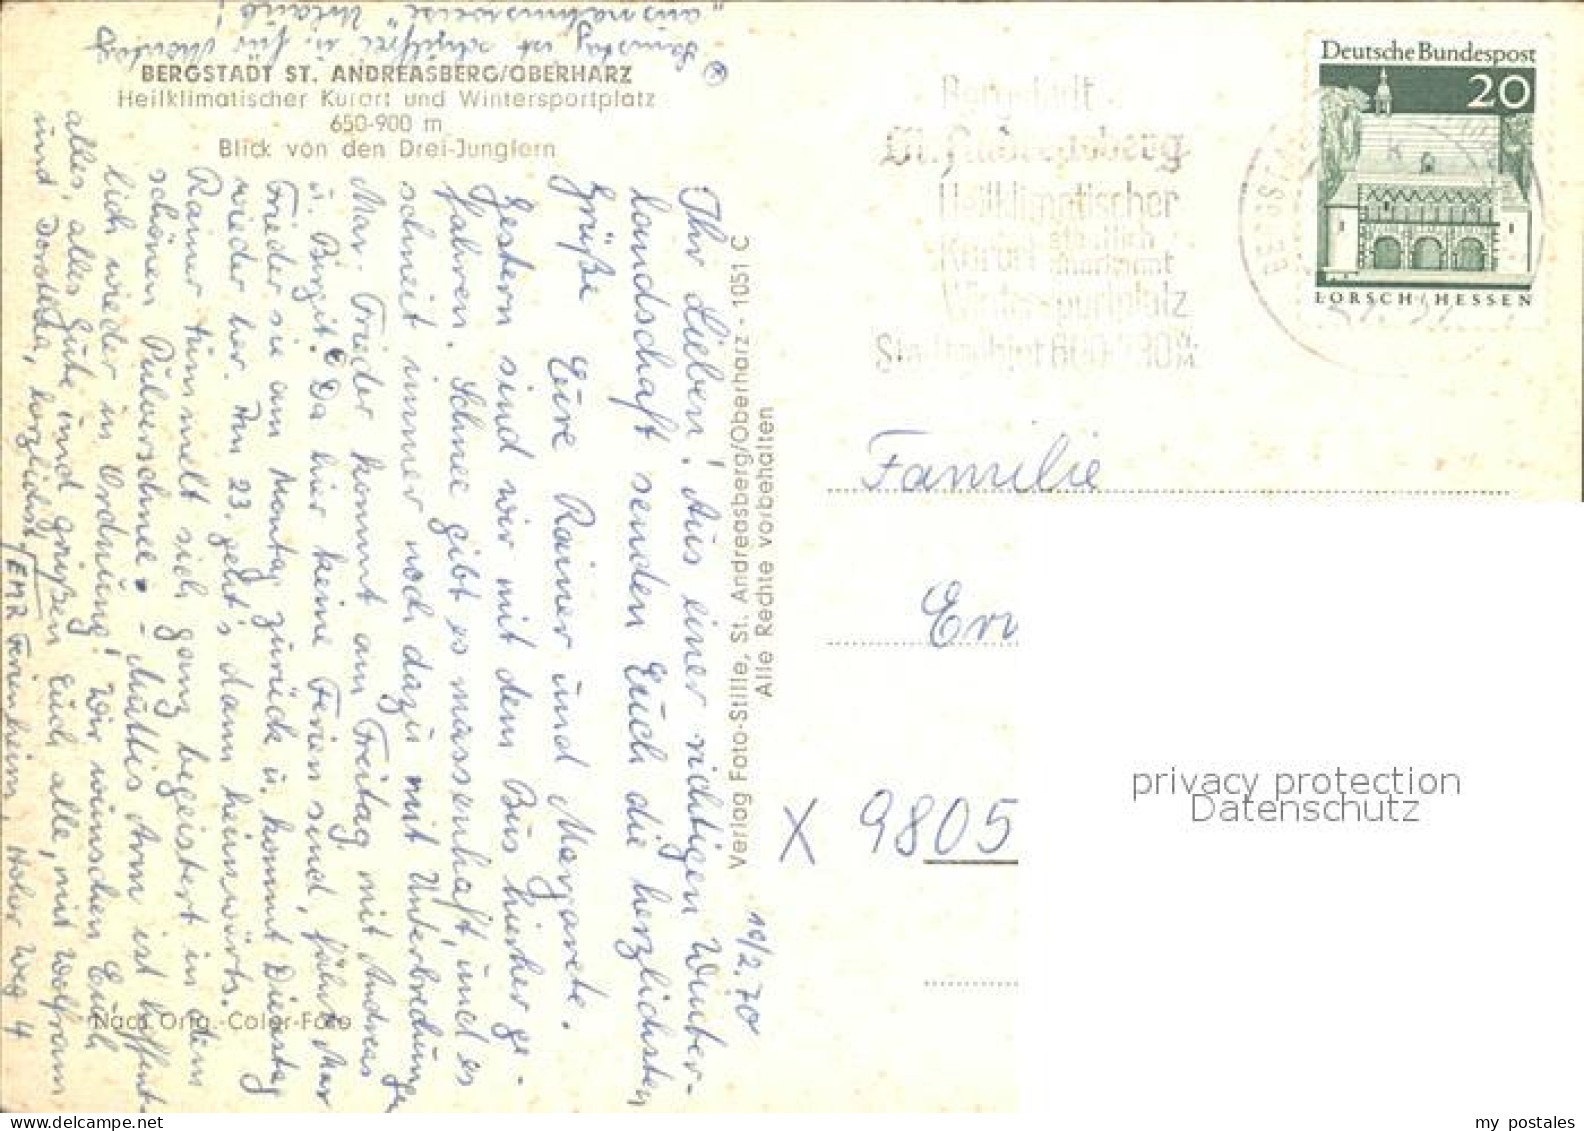 BERGSTADT ST. ANDREASBERG/OBERHARZ
Heilklimatischer Kurort und Wintersportplatz
650-900 m
Blick von den Drei-Jungfern
Ihr Lieben! Aus einer richtigen Winter-
landschaft senden Euch die herzlichsten
Grüße Eure Rainer und Margarete.
Gestern sind wir mit dem Bus hierher ge-
fahren. Schnee gibt es massenhaft, und es
schneit immer noch dazu mit Unterbrechung.
Mar. Frieder kommt am Freitag mit Andreas
u. Birgit. ⊗ Da hier keine Ferien sind, fährt Mar
Frieder sie am Montag zurück u. kommt Dienstag
wieder her. Am 23. geht's dann heimwärts.
Rainer tummelt sich ganz begeistert in dem
schönen Pulverschnee. - Muttis Arm ist hoffent-
lich wieder in Ordnung! Wir wünschen Euch
alles, alles Gute und grüßen Euch alle, mit Wolfram
und Dorothea, herzlichst / EMR Ferienheim, Hoher Weg 4
⊗ Samstag ist schulfrei u. für Montag
"ausnahmsweise" Urlaub!
Nach Orig.-Color-Foto
Verlag Foto-Stille, St. Andreasberg/Oberharz - 1051 C
Alle Rechte vorbehalten
10/2.70
Bergstadt
St. Andreasberg
Heilklimatischer
Kurort staatlich
anerkannt
Wintersportplatz
Deutsche Bundespost
20
LORSCH/HESSEN
Familie
X 9805
privacy protection
Datenschutz
my postales